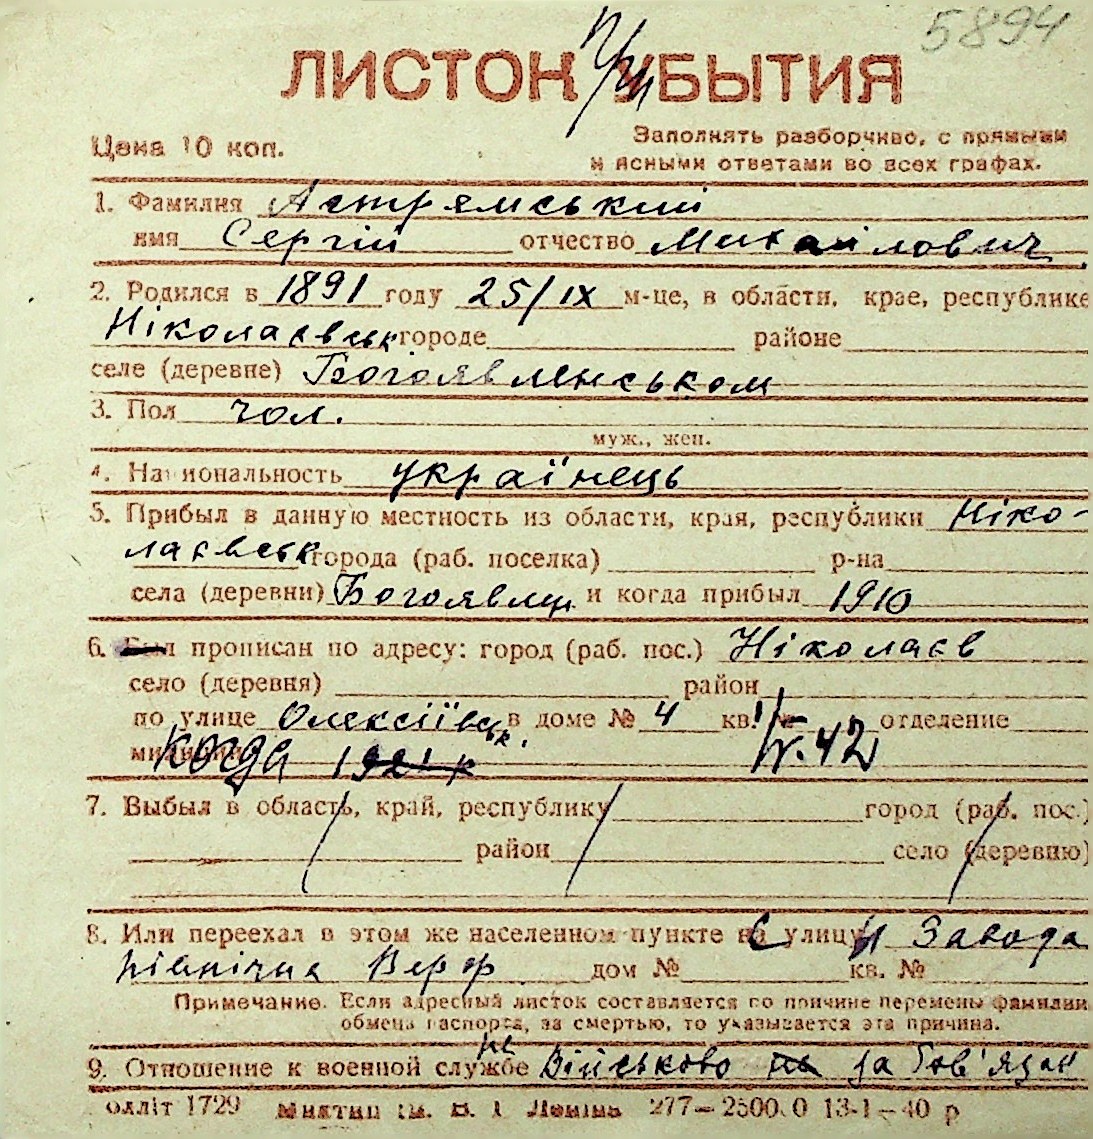 5894
ЛИСТОК при УБЫТИЯ
Цена 10 коп.
Заполнять разборчиво, с прямыми
и ясными ответами во всех графах.
1. Фамилия Астрямський
имя Сергій отчество Михайлович
2. Родился в 1891 году 25/IX м-це, в области, крае, республике
Ніколаєвськ городе районе
селе (деревне) Богоявленськом
3. Пол чол.
муж., жен.
4. Национальность українець
5. Прибыл в данную местность из области, края, республики Ніко-
лаєвськ города (раб. поселка) р-на
села (деревни) Богоявлен и когда прибыл 1910
6. Был прописан по адресу: город (раб. пос.) Ніколаєв
село (деревня) район
по улице Олексіївськ. в доме № 4 кв. № отделение
милиции когда 1921 IV.42
7. Выбыл в область, край, республику город (раб. пос.)
район село (деревню)
8. Или переехал в этом же населенном пункте на улицу С И Завода
північна Верф дом № кв. №
Примечание. Если адресный листок составляется по причине перемены фамилии,
обмена паспорта, за смертью, то указывается эта причина.
9. Отношение к военной службе не Військово за бов'язан
олліт 1729 Миктип ім. В. І Леніна 277—2500.0 13-1—40 р